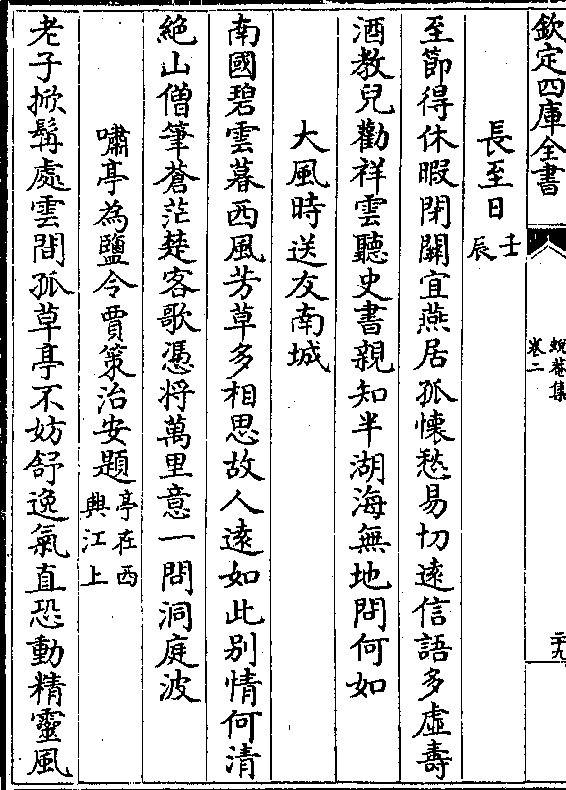 欽定四庫全書
蛻菴集
卷二
二十九
長至日壬辰
至節得休暇閉關宜燕居孤懐愁易切逺信語多虛壽
酒教兒勸祥雲聽史書親知半湖海無地問何如
大風時送友南城
南國碧雲暮西風芳草多相思故人逺如此别情何清
絶山僧筆蒼茫楚客歌憑将萬里意一問洞庭波
嘯亭為鹽令賈策治安題亭在西興江上
老子掀髯處雲間孤草亭不妨舒逸氣直恐動精靈風